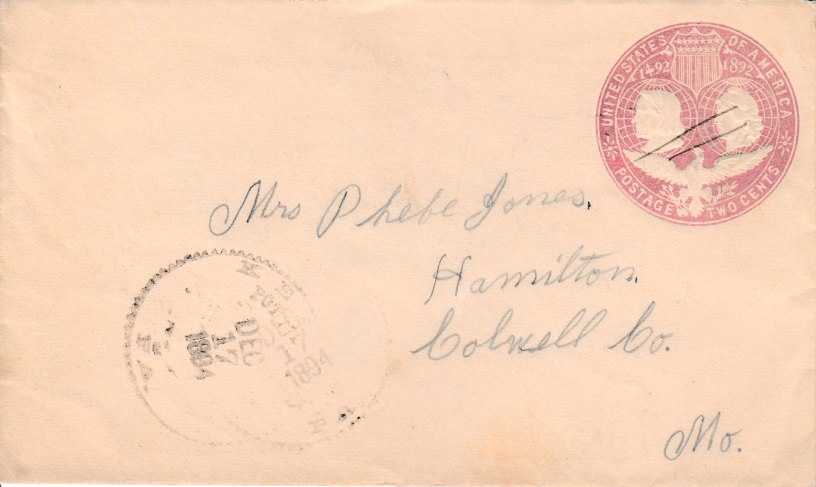 UNITED STATES OF AMERICA
1492 1892
POSTAGE TWO CENTS
Mrs Phebe Jones.
Hamilton.
Colwell Co.
Mo.
DEC
17
1894
1894
PA.